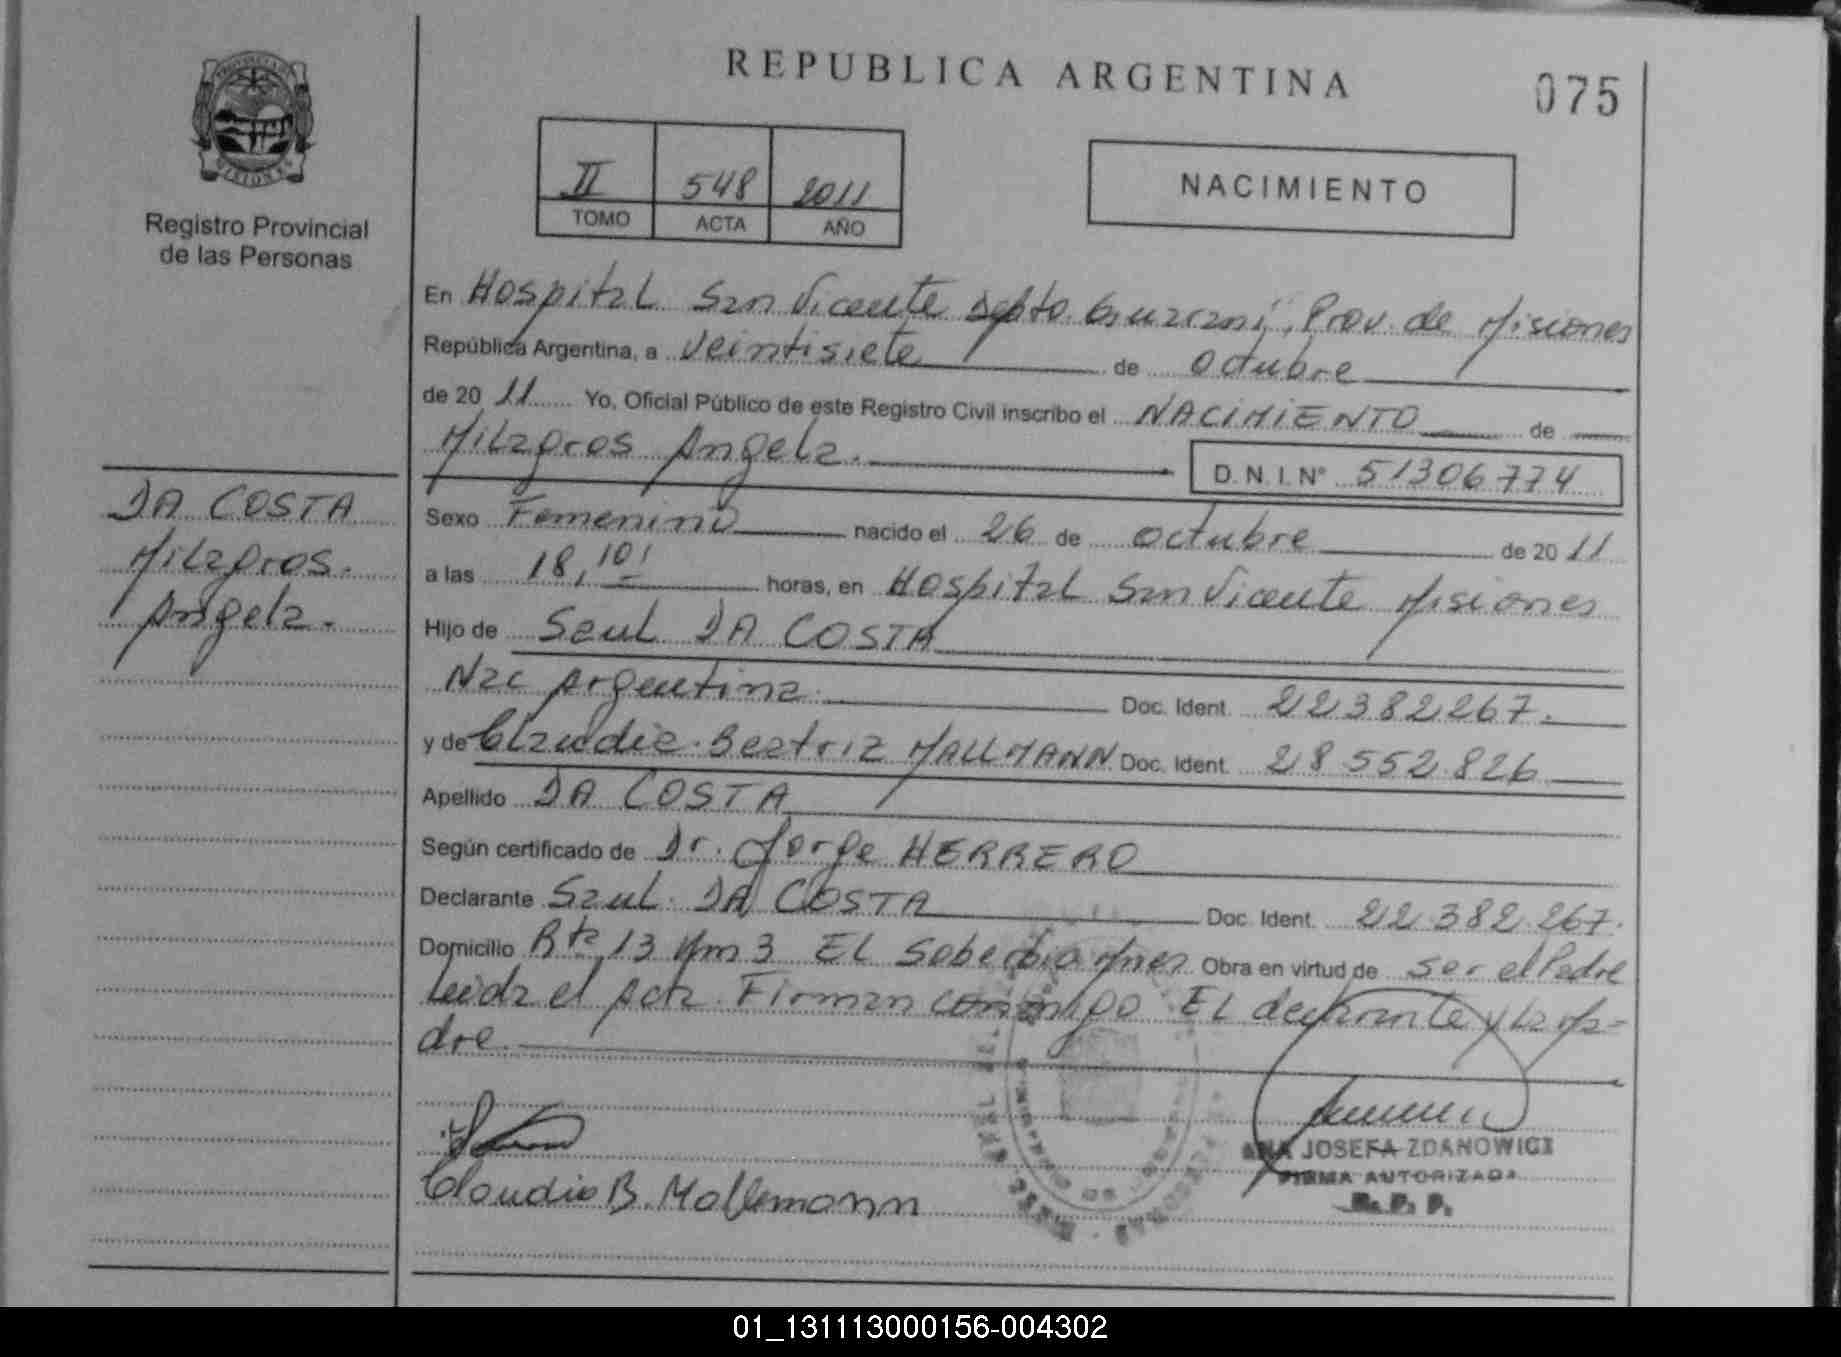 REPUBLICA ARGENTINA
075
II 548 2011
TOMO ACTA AÑO
NACIMIENTO
Registro Provincial
de las Personas
En Hospital San Vicente Depto. Guarani, Prov. de Misiones
República Argentina, a veintisiete de octubre
de 20 11 Yo, Oficial Público de este Registro Civil inscribo el NACIMIENTO de
Milagros Angela.
D. N. I. N° 51306774
DA COSTA
Milagros.
Angela.
Sexo Femenino nacido el 26 de octubre de 20 11
a las 18,10 horas, en Hospital San Vicente Misiones
Hijo de Saul DA COSTA
Nac Argentina. Doc. Ident. 22382267.
y de Claudia. Beatriz MALLMANN Doc. Ident. 28 552 826
Apellido DA COSTA
Según certificado de Dr. Jorge HERRERO
Declarante Saul. DA COSTA Doc. Ident. 22.382.267.
Domicilio Rta 13 Km 3 EL Soberbio Mnes Obra en virtud de ser el Padre
Leida el Acta. Firman conmigo EL declarante y La Ma-
dre.
Claudia B. Mallmann
ANA JOSEFA ZDANOWICZ
FIRMA AUTORIZADA
R. P. P.
01_131113000156-004302